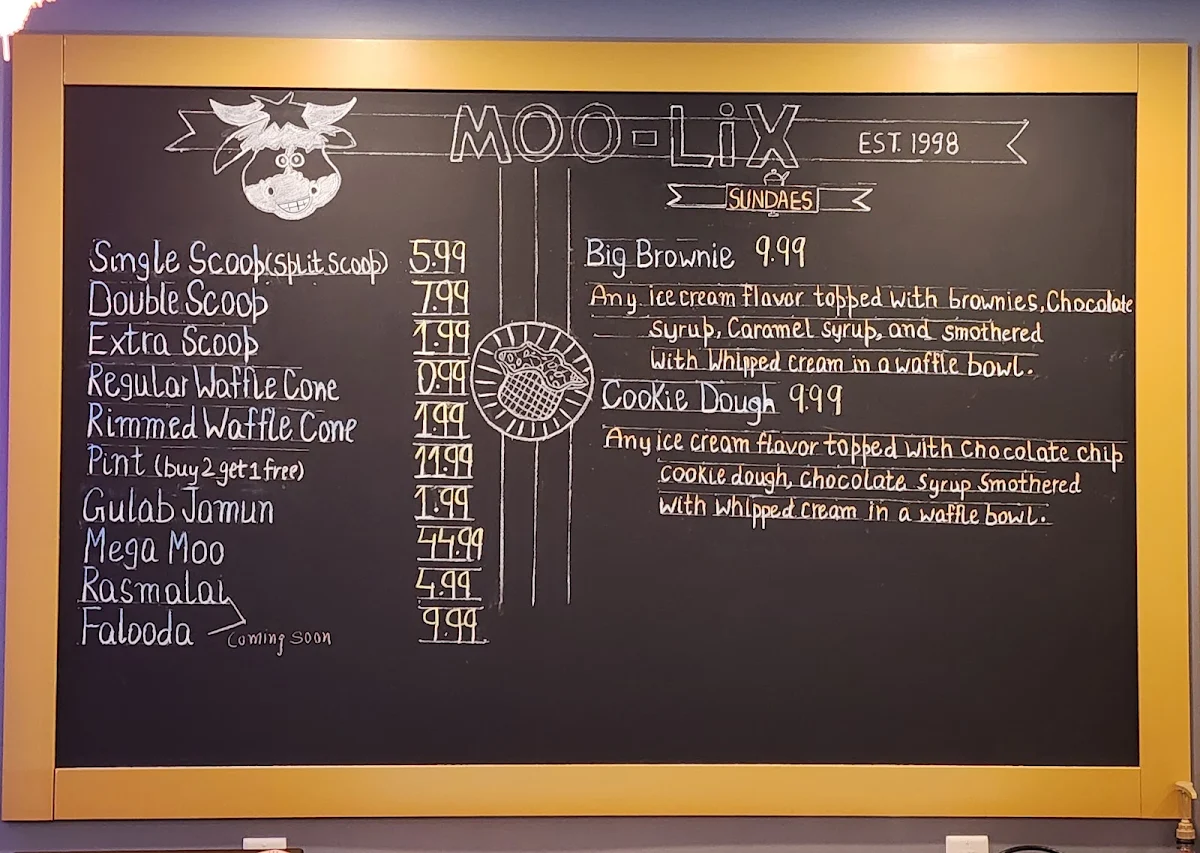 MOO-LiX
EST. 1998
SUNDAES
Single Scoop (Split Scoop) 5.99
Double Scoop 7.99
Extra Scoop 1.99
Regular Waffle Cone 0.99
Rimmed Waffle Cone 1.99
Pint (buy 2 get 1 free) 11.99
Gulab Jamun 1.99
Mega Moo 44.99
Rasmalai 4.99
Falooda 9.99
Coming Soon
Big Brownie 9.99
Any ice cream flavor topped with brownies, Chocolate
syrup, Caramel syrup, and smothered
with whipped cream in a waffle bowl.
Cookie Dough 9.99
Any ice cream flavor topped with Chocolate chip
cookie dough, chocolate syrup smothered
with whipped cream in a waffle bowl.